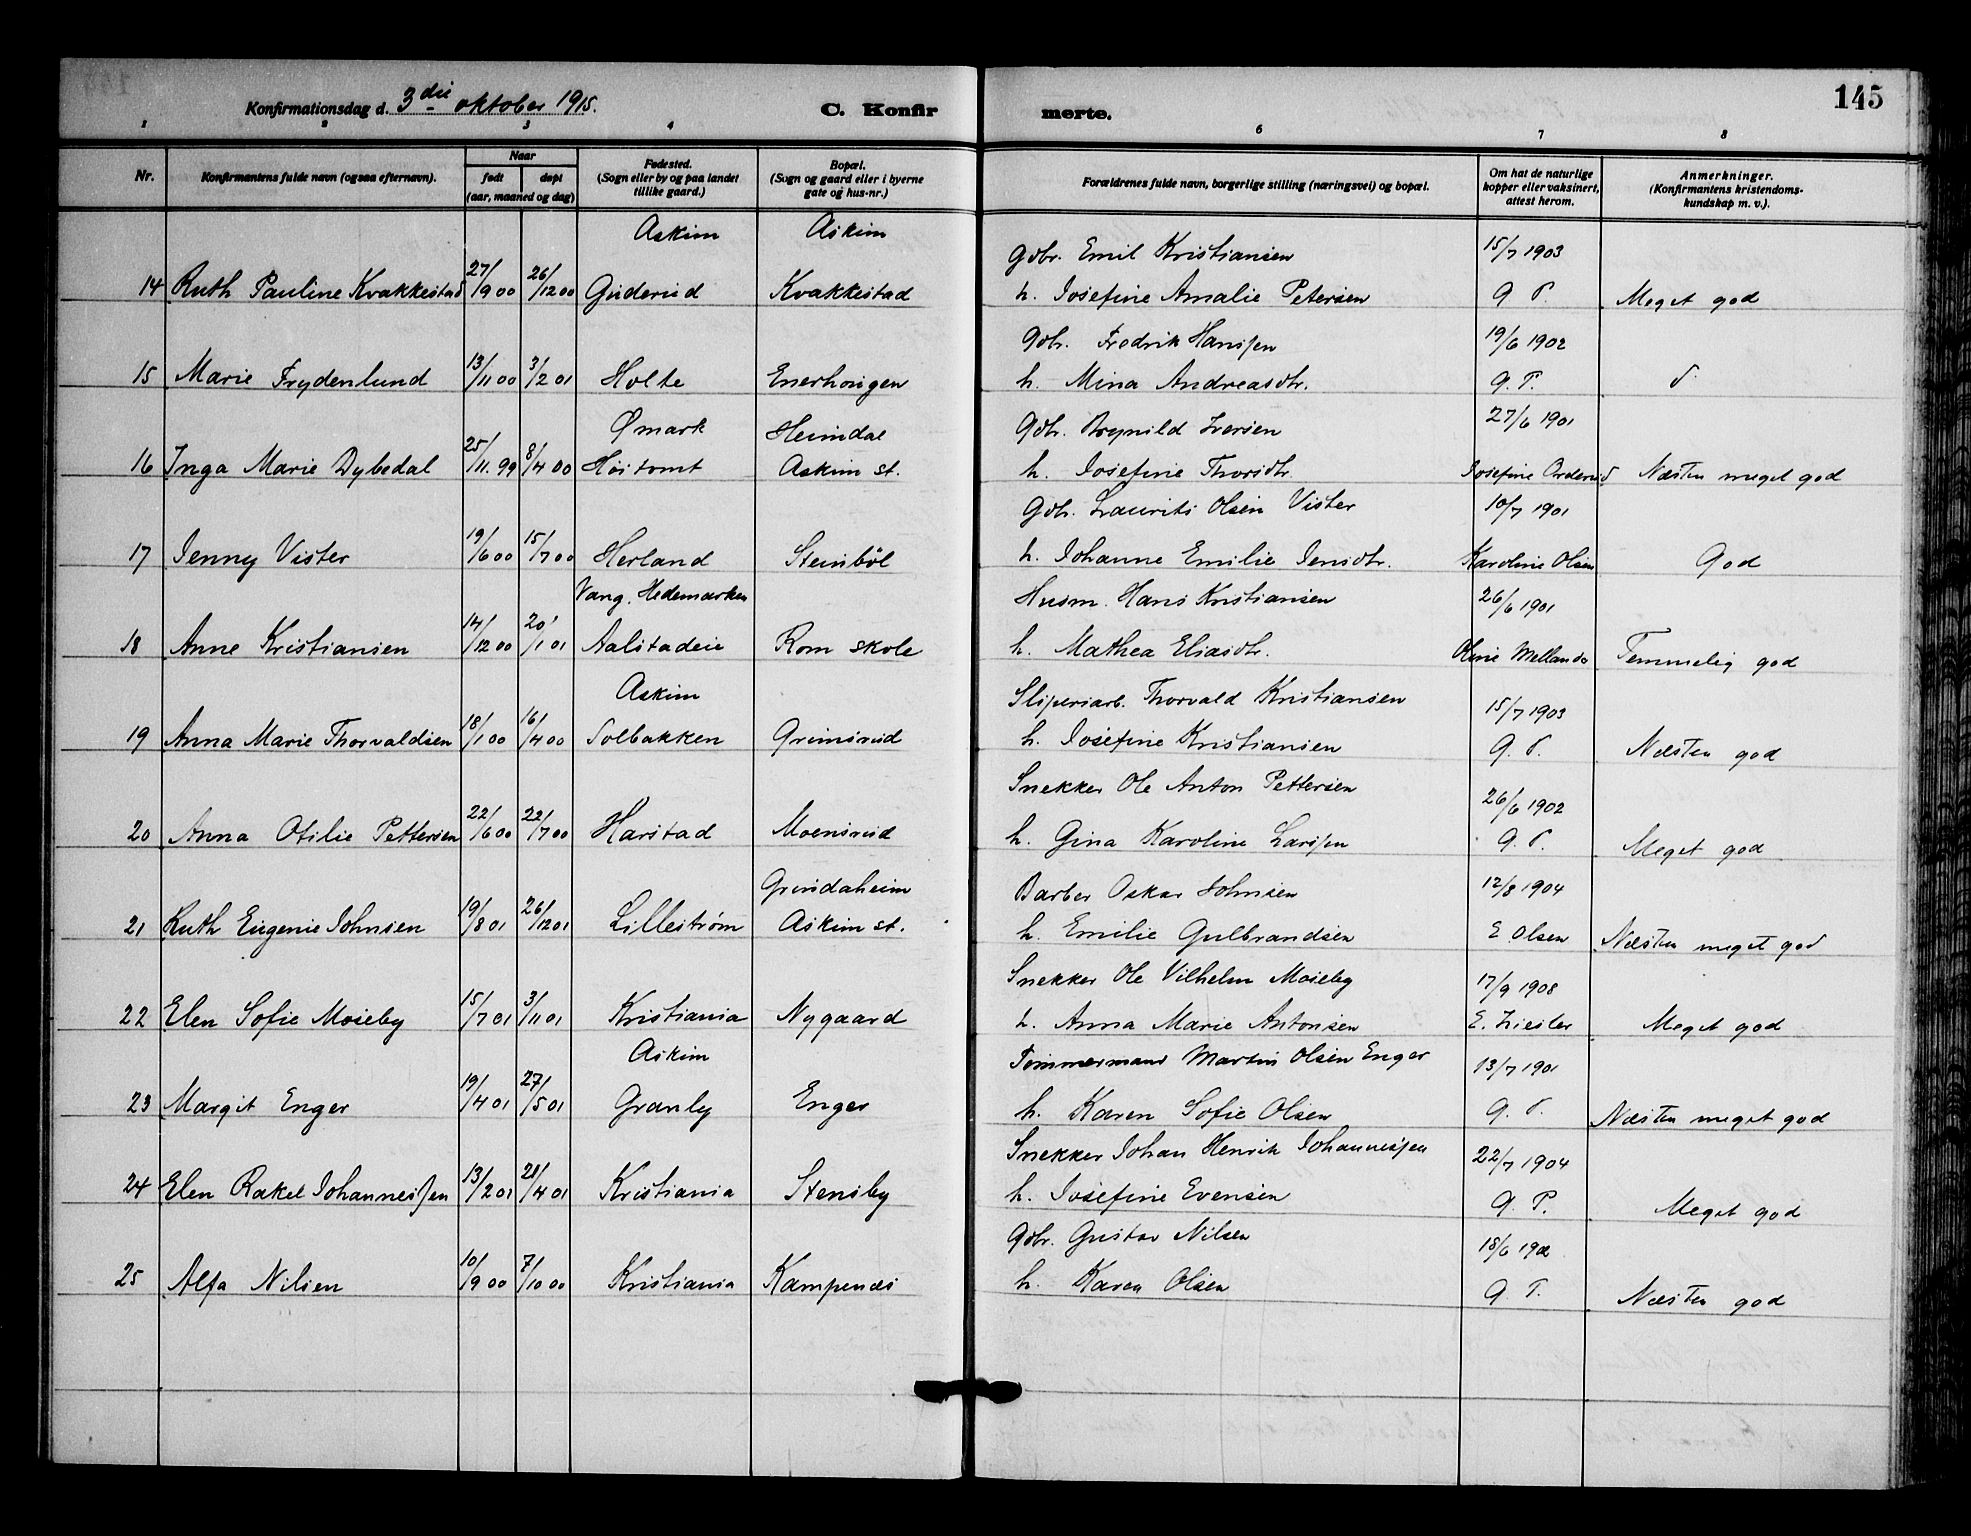 145
Konfirmationsdag d. 3die oktober 1915.
C. Konfirmerte.
1 2 3 4 6 7 8
Nr.
Konfirmantens fulde navn (ogsaa efternavn).
Naar
født
døpt
(aar, maaned og dag)
Fødested.
(Sogn eller by og paa landet
tillike gaard.)
Bopæl.
(Sogn og gaard eller i byerne
gate og hus-nr.)
Forældrenes fulde navn, borgerlige stilling (næringsvei) og bopæl.
Om hat de naturlige
kopper eller vaksinert,
attest herom.
Anmerkninger.
(Konfirmantens kristendoms-
kundskap m. v.).
Askim Askim Gdbr. Emil Kristiansen 15/7 1903
14 Ruth Pauline Kvakkestad 27/9 00 26/12 00 Guderud Kvakkestad h. Josefine Amalie Petersen Meget god
Gdbr. Fredrik Hanssen 19/6 1902
15 Marie Frydenlund 13/11 00 3/2 01 Holte Enerhougen h. Mina Andreasdtr.
Ømark Heimdal Gdbr. Brynild Iversen 27/6 1901
16 Inga Marie Dybedal 25/11. 99 8/4 00 Høitomt Askim st. h. Josefine Thorsdtr. Josefine Næsten meget god
Gdbr. Laurits Olsen Vister 10/7 1901
17 Jenny Vister 19/6 00 15/7 00 Herland Stenbøl h. Johanne Emilie Jensdtr. Karoline Olsen God
Vang. Hedemarken Husm. Hans Kristiansen 26/6 1901
18 Anne Kristiansen 14/12 00 20/1 01 Aalstadeie Rom skole h. Mathea Eliasdtr. Oline Temmelig god
Askim Sliperiarb. Thorvald Kristiansen 15/7 1903
19 Anna Marie Thorvaldsen 18/1 00 16/4 00 Solbakken Grimsrud h. Josefine Kristiansen Næsten god
Snekker Ole Anton Pettersen 26/6 1902
20 Anna Otilie Pettersen 22/6 00 22/7 00 Harstad Moensrud h. Gina Karoline Larssen Meget god
Grindaheim Barber Oskar Johnsen 12/8 1904
21 Ruth Eugenie Johnsen 19/8 01 26/12 01 Lillestrøm Askim st. h. Emilie Gulbrandsen E. Olsen Næsten meget god
Snekker Ole Vilhelm Moseby 17/9 1908
22 Elen Sofie Moseby 15/7 01 3/11 01 Kristiania Nygaard h. Anna Marie Antonsen Meget god
Askim Tømmermand Martin Olsen Enger 13/7 1901
23 Margit Enger 19/4 01 27/5 01 Granly Enger h. Karen Sofie Olsen Næsten meget god
Snekker Johan Henrik Johannessen 22/7 1904
24 Elen Rakel Johannessen 13/2 01 21/4 01 Kristiania Stensby h. Josefine Evensen Meget god
Gdbr. Gustav Nilsen
25 Alfa Nilsen 10/9 00 7/10 00 Kristiania Kampenæs h. Karen Olsen Næsten god